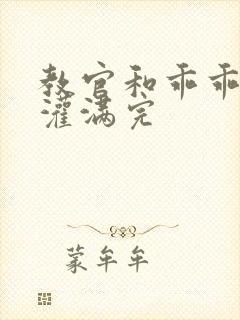 教官和乖乖
灌满完
蒙牟牟